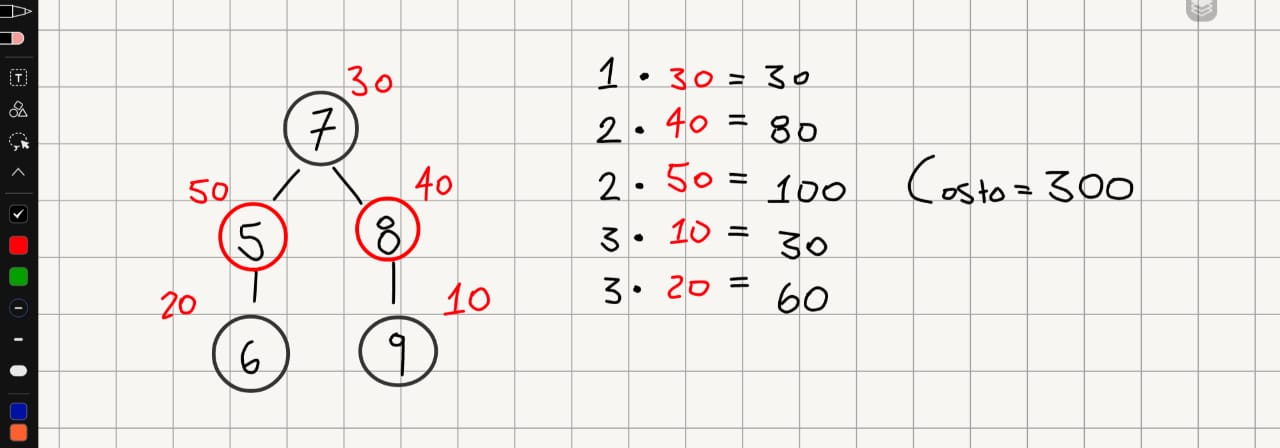 30
7
50 40
5 8
20 10
6 9
1 · 30 = 30
2 · 40 = 80
2 · 50 = 100
3 · 10 = 30
3 · 20 = 60
Costo = 300